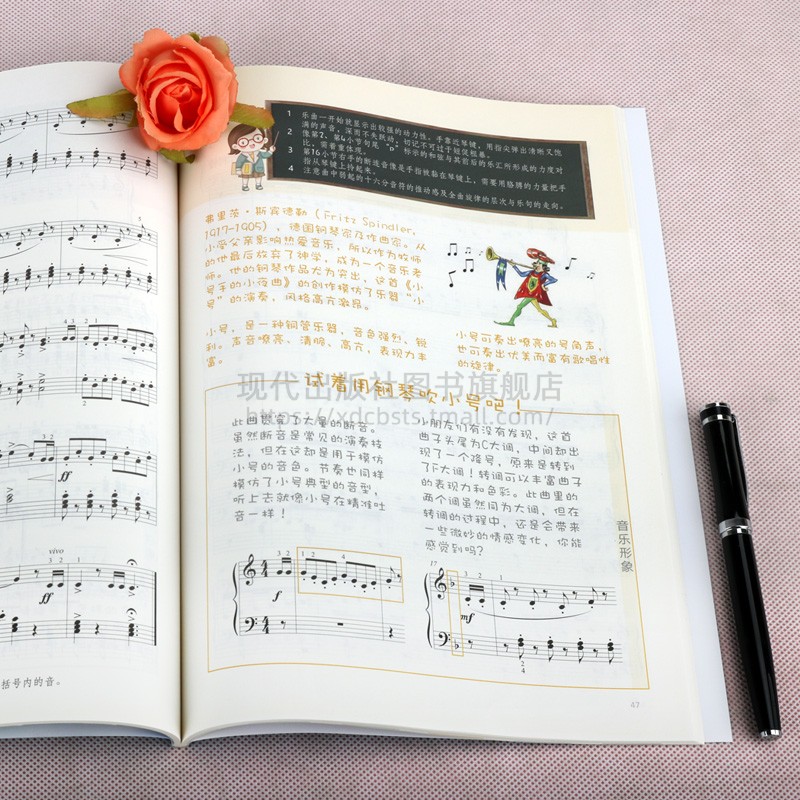 1 乐曲一开始就显示出较强的动力性。手靠近琴键，用指尖弹出清晰又饱
满的声音，深而不失跳动，切记不可过于短促粗暴。
2 像第2、第4小节句尾“o”标示的和弦与其前后的乐汇所形成的力度对
比，需着重体现。
3 第16小节右手的断连音像是手指被黏在琴键上，需要用胳膊的力量把手
指从琴键上拎起来。
4 注意曲中弱起的十六分音符的推动感及全曲旋律的层次与乐句的走向。
弗里茨·斯宾德勒（Fritz Spindler,
1917-1905），德国钢琴家及作曲家。从
小受父亲影响热爱音乐，所以作为牧师
的他最后放弃了神学，成为一个音乐老
师。他的钢琴作品尤为突出，这首《小
号手的小夜曲》的创作模仿了乐器“小
号”的演奏，风格高亢激昂。
小号，是一种铜管乐器，音色强烈、锐
利。声音嘹亮、清脆、高亢，表现力丰
富。
小号可奏出嘹亮的号角声，
也可奏出优美而富有歌唱性
的旋律。
试着用钢琴吹小号吧！
现代出版社图书旗舰店
https://xdcbsts.tmall.com/
此曲撰写了大量的断音。
虽然断音是常见的演奏技
法，但在这却是用于模仿
小号的音色。节奏也同样
模仿了小号典型的音型，
听上去就像小号在精准吐
音一样！
小朋友们有没有发现，这首
曲子头尾为C大调，中间却出
现了一个降号，原来是转到
了F大调！转调可以丰富曲子
的表现力和色彩。此曲里的
两个调虽然同为大调，但在
转调的过程中，还是会带来
一些微妙的情感变化，你能
感觉到吗？
音乐形象
3 2
1 2 4
f
17
3 2
1
mf
2
4
5
3 4 3 2 1
2
ff
vivo
3 2
ff
括号内的音。
47